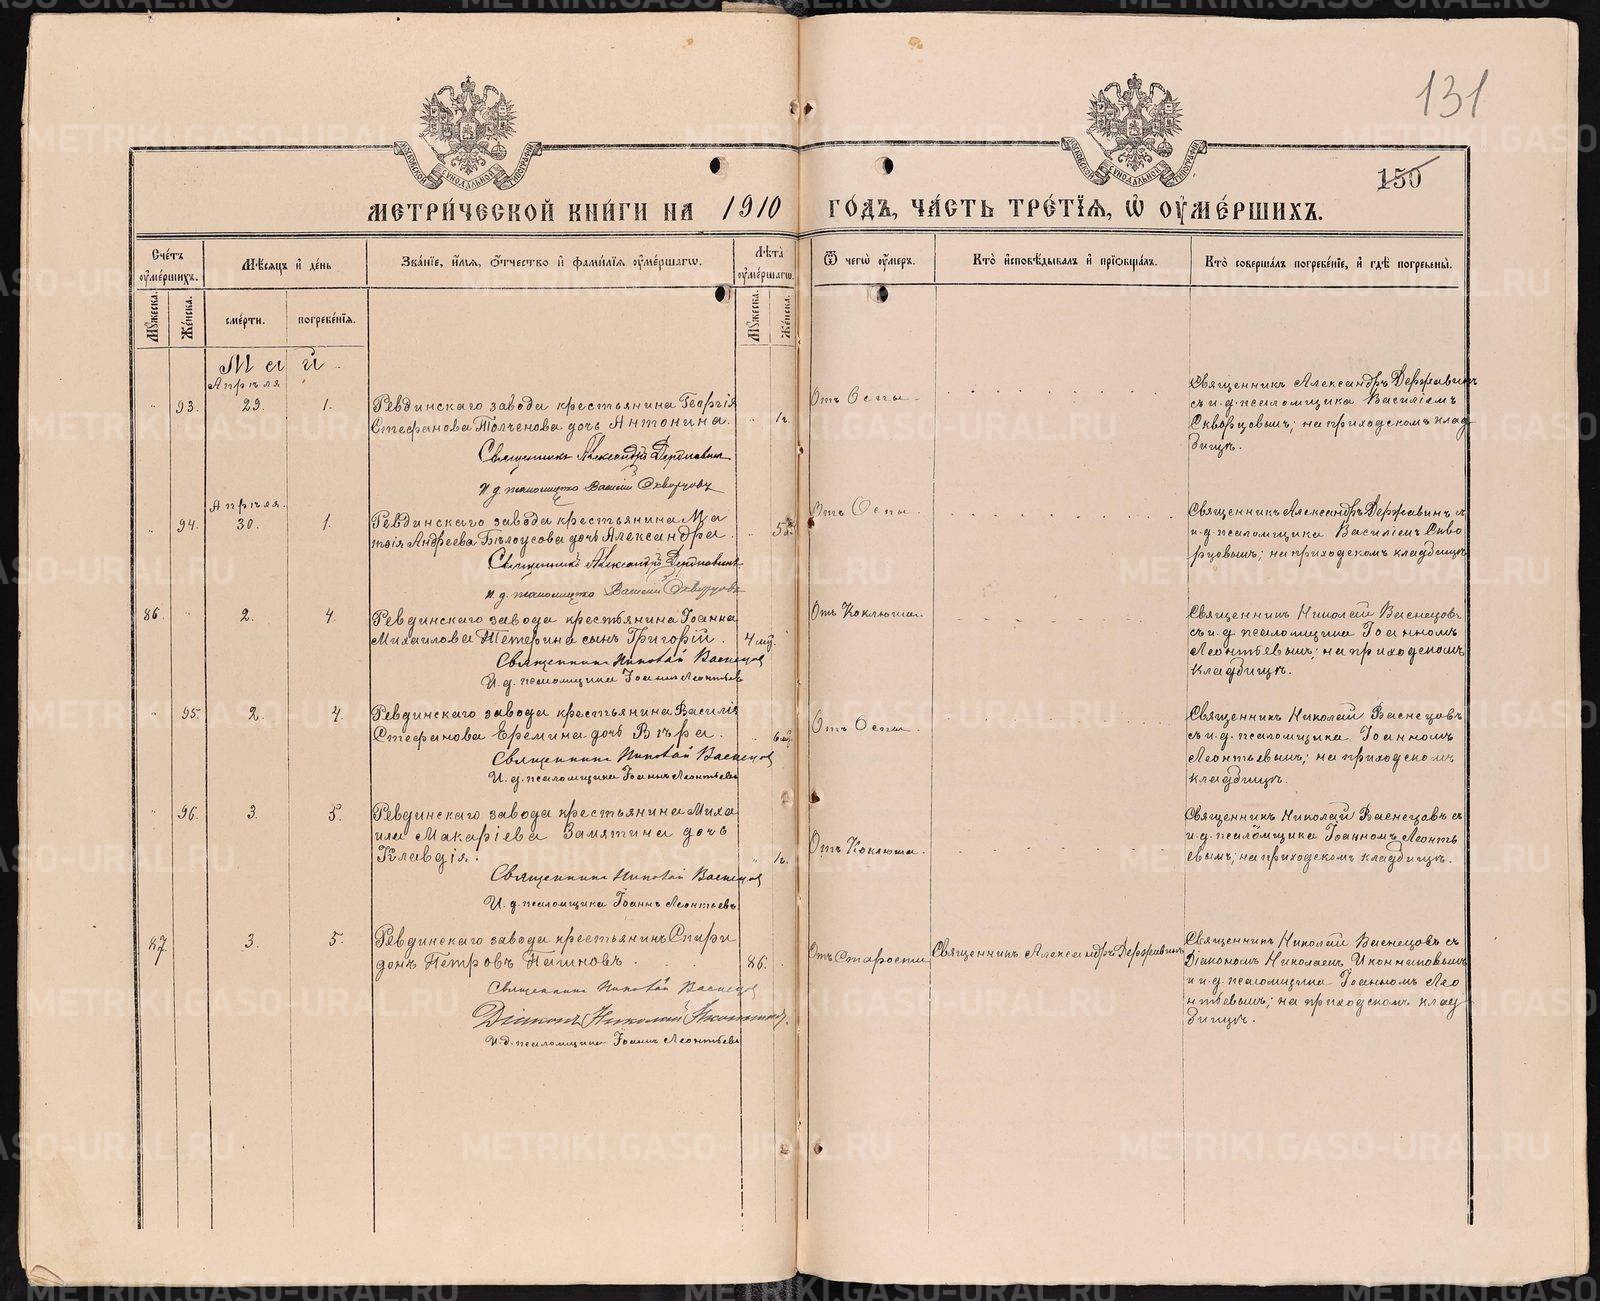 131
150
МОСКОВСКОЙ СѴНОДАЛЬНОЙ ТИПОГРАФІИ
МОСКОВСКОЙ СѴНОДАЛЬНОЙ ТИПОГРАФІИ
МЕТРИ́ЧЕСКОЙ КНИ́ГИ НА 1910 ГО́ДЪ, ЧА́СТЬ ТРЕ́ТІѦ, Ѽ ОУМЕ́РШИХЪ.
Сче́тъ оуме́ршихъ.
Мѣсяцъ и день
Зва́нїе, и́мѧ, ѻ҆́тчество и҆ фами́лїѧ оуме́ршагѡ.
Лѣта̀ оуме́ршагѡ.
Ѿ чегѡ̀ оу́меръ.
Кто̀ и҆сповѣ́дывалъ и҆ прїѡбща́лъ.
Кто̀ соверша́лъ погребе́нїе, и҆ гдѣ̀ погребены̀.
Мꙋ́жеска.
Же́нска.
сме́рти.
погребе́нїѧ.
Мꙋ́жеска.
Же́нска.
Май.
Апрѣля
93. 29. 1.
Ревдинскаго завода крестьянина Георгія
Стефанова Толченова дочь Антонина.
1 г.
Священникъ Александръ Державинъ
И.д. псаломщика Василій Скворцовъ
Отъ Оспы.
Священникъ Александръ Державинъ
съ и.д. псаломщика Василіемъ
Скворцовымъ; на приходскомъ клад
бищѣ.
Апрѣля.
94. 30. 1.
Ревдинскаго завода крестьянина Ма
тѳія Андреева Бѣлоусова дочь Александра.
Священникъ Александръ Державинъ
И.д. псаломщика Василій Скворцовъ
Отъ Оспы.
Священникъ Александръ Державинъ съ
и.д. псаломщика Василіемъ Скво
рцовымъ; на приходскомъ кладбищѣ
86. 2. 4.
Ревдинскаго завода крестьянина Іоанна
Михаилова Тетерина сынъ Григорій.
4 мѣ.
Священникъ Николай Васнецовъ
И.д. псаломщика Іоаннъ Леонтьевъ
Отъ Коклюша.
Священникъ Николай Васнецовъ
съ и.д. псаломщика Іоанномъ
Леонтьевымъ; на приходскомъ
кладбищѣ.
95. 2. 4.
Ревдинскаго завода крестьянина Василія
Стефанова Еремина дочь Вѣра.
6 мѣ.
Священникъ Николай Васнецовъ
И.д. псаломщика Іоаннъ Леонтьевъ
Отъ Оспы.
Священникъ Николай Васнецовъ
съ и.д. псаломщика Іоанномъ
Леонтьевымъ; на приходскомъ
кладбищѣ.
96. 3. 5.
Ревдинскаго завода крестьянина Миха
ила Макаріева Замятина дочь
Клавдія.
1 г.
Священникъ Николай Васнецовъ
И.д. псаломщика Іоаннъ Леонтьевъ.
Отъ Коклюша.
Священникъ Николай Васнецовъ съ
и.д. псаломщика Іоанномъ Леонть
евымъ; на приходскомъ кладбищѣ.
87. 3. 5.
Ревдинскаго завода крестьянинъ Спири
донъ Петровъ Пашновъ.
86.
Священникъ Николай Васнецовъ
Діаконъ Николай Иконниковъ.
И.д. псаломщика Іоаннъ Леонтьевъ
Отъ Старости
Священникъ Александръ Державинъ
Священникъ Николай Васнецовъ съ
Діакономъ Николаемъ Иконниковымъ
и и.д. псаломщика Іоанномъ Лео
нтьевымъ; на приходскомъ клад
бищѣ.
METRIKI.GASO-URAL.RU